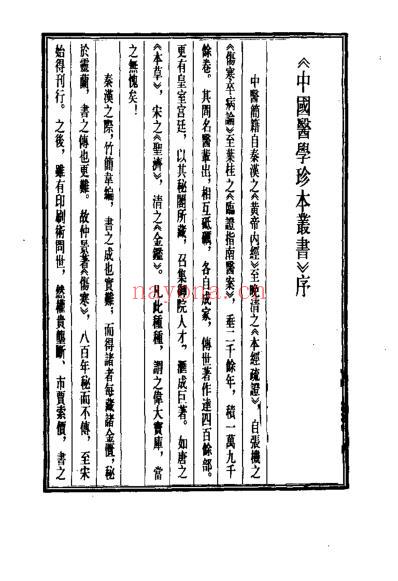 《中國醫學珍本叢書》序
中醫簡籍自秦漢之《黃帝內經》至晚清之《本經疏證》，自張機之
《傷寒卒病論》至葉桂之《臨證指南醫案》，垂二千餘年，積一萬九千
餘卷。其間名醫輩出，相互砥礪，各自成家，傳世著作達四百餘部。
更有皇室宮廷，以其秘閣所藏，召集翰院人才，滙成巨著。如唐之
《本草》，宋之《聖濟》，清之《金鑑》。凡此種種，謂之偉大寶庫，當
之無愧矣！
秦漢之際，竹簡韋編，書之成也實難；而得諸者每藏諸金匱，秘
於靈蘭，書之傳也更難。故仲景著《傷寒》，八百年秘而不傳，至宋
始得刊行。之後，雖有印刷術問世，然權貴壟斷、市賈索價，書之
nayona.cn